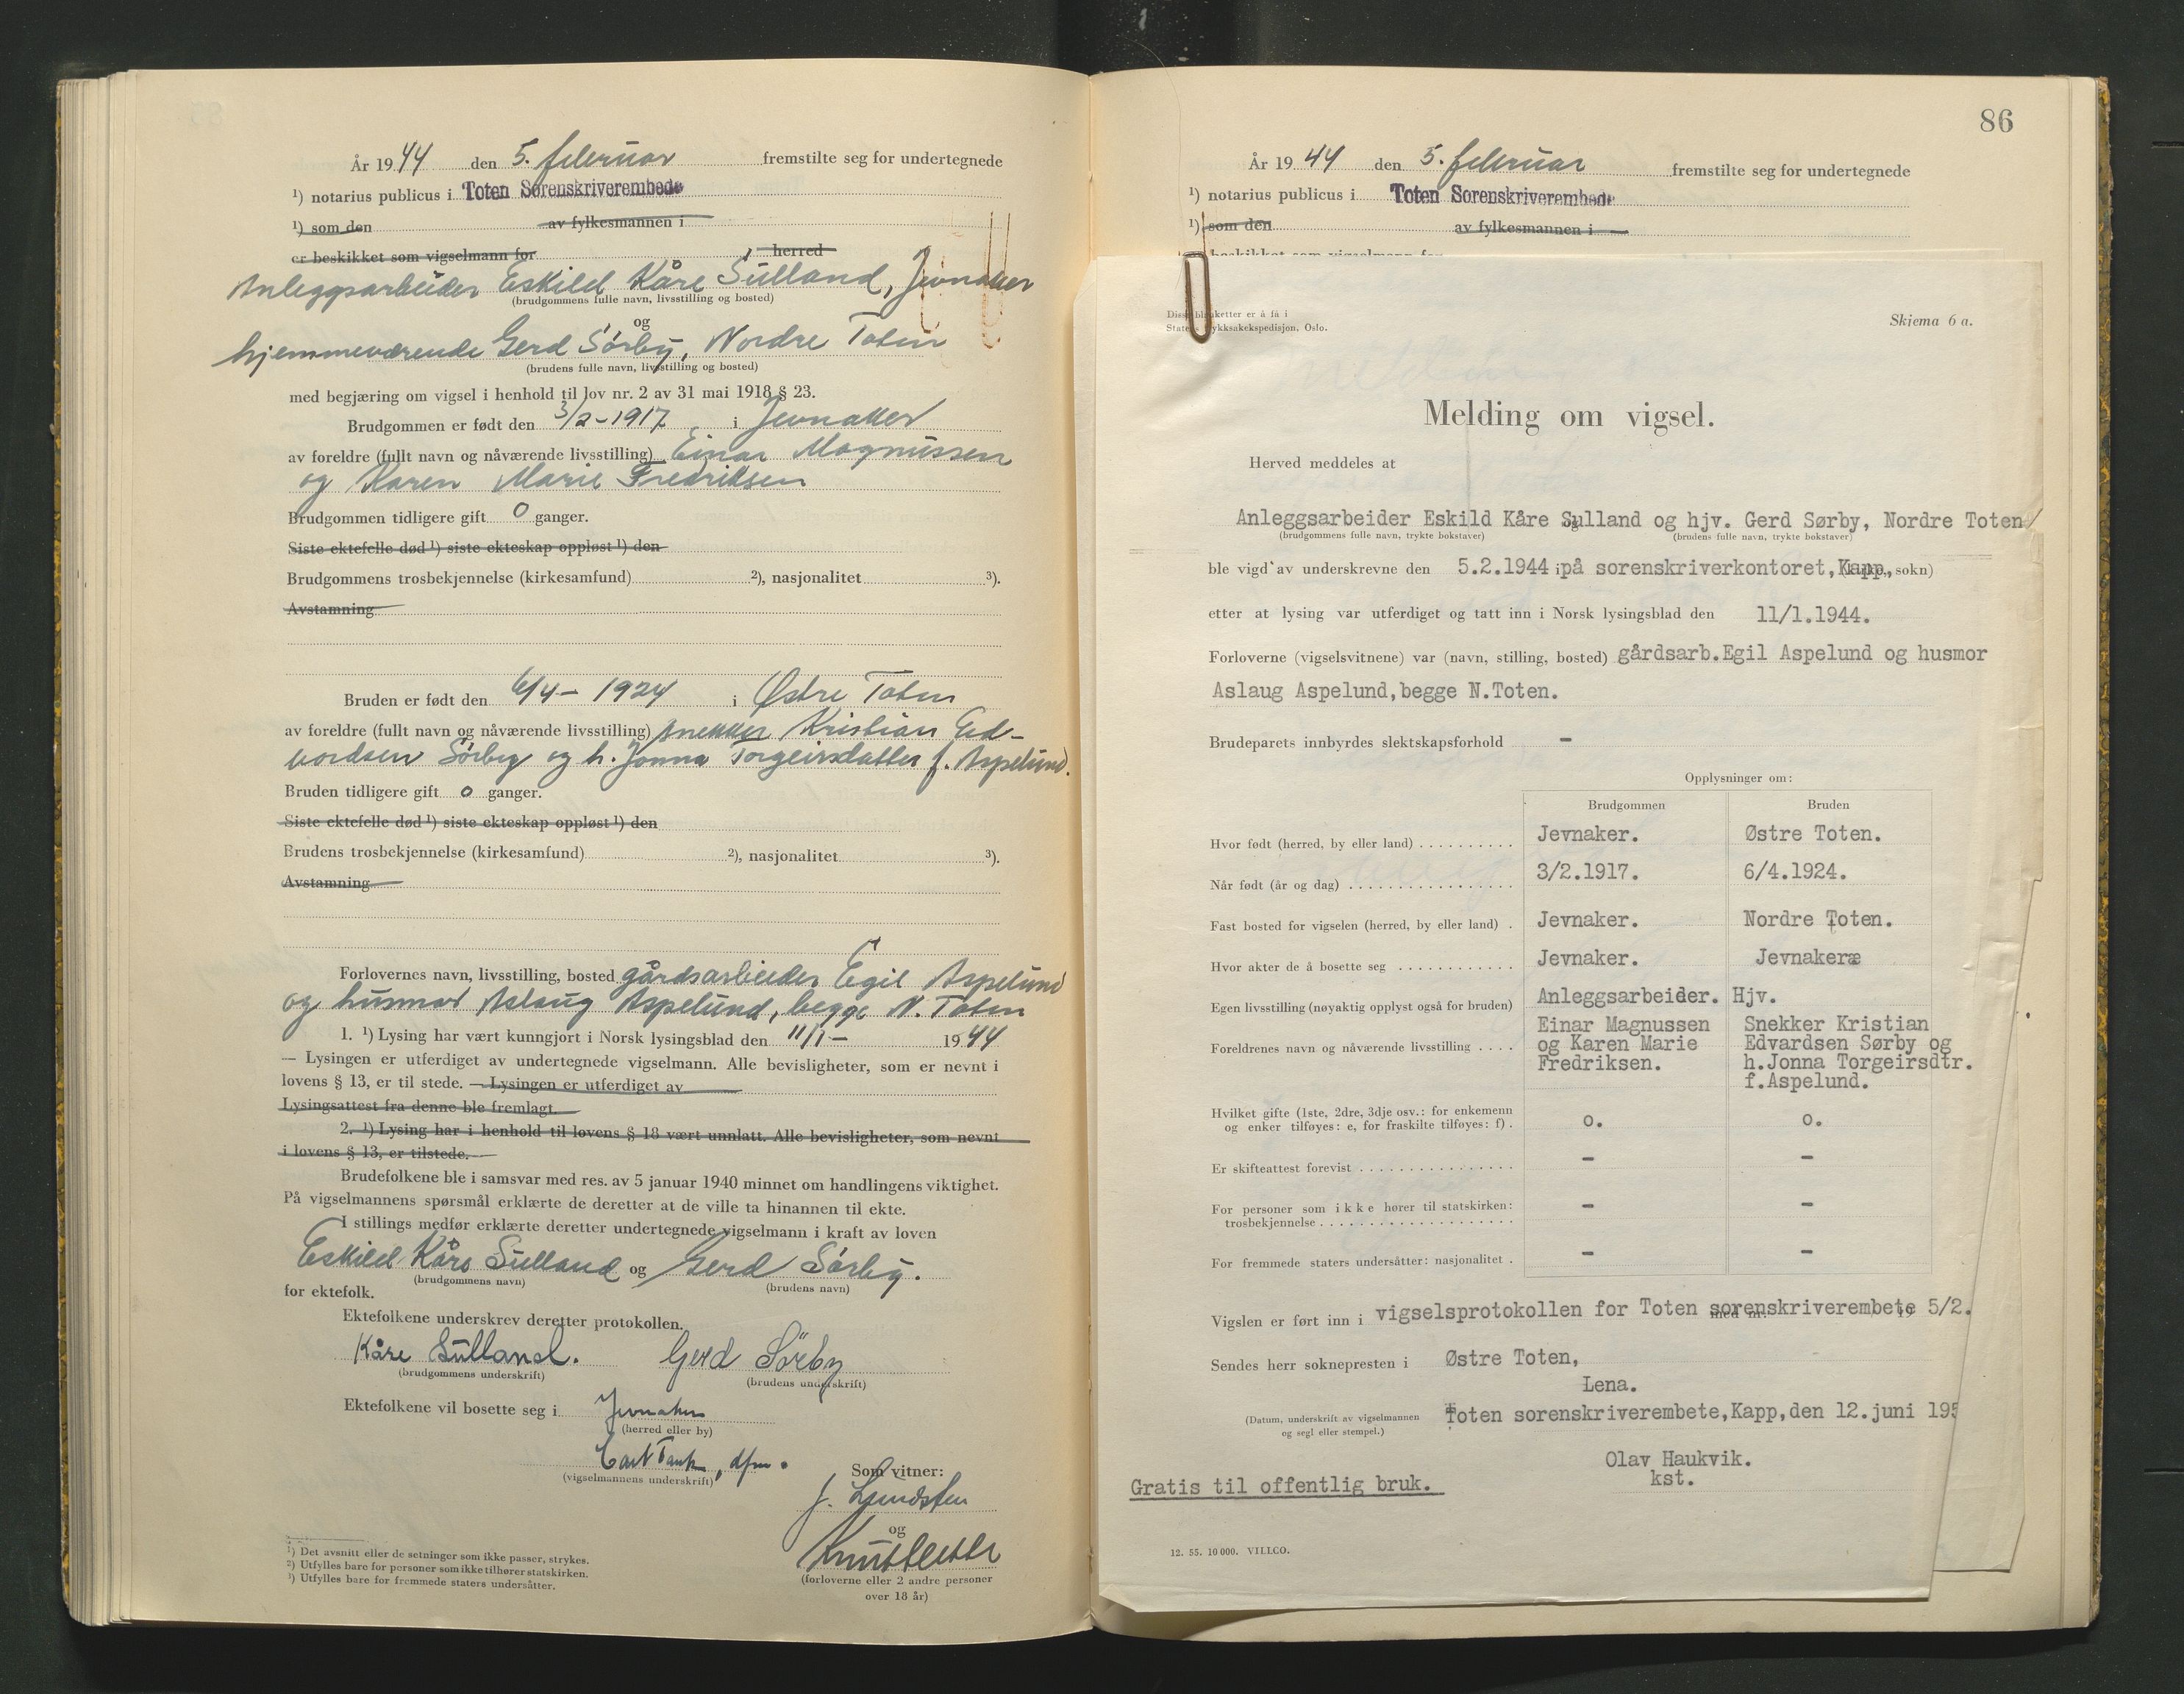 År 1944 den 5. februar fremstilte seg for undertegnede
¹) notarius publicus i Toten Sorenskriverembede
¹) som den av fylkesmannen i
er beskikket som vigselmann for herred
Anleggsarbeider Eskild Kåre Sulland, Jevnaker
(brudgommens fulle navn, livsstilling og bosted)
og
hjemmeværende Gerd Sørby, Nordre Toten
(brudens fulle navn, livsstilling og bosted)
med begjæring om vigsel i henhold til lov nr. 2 av 31 mai 1918 § 23.
Brudgommen er født den 3/2-1917 i Jevnaker
av foreldre (fullt navn og nåværende livsstilling) Einar Magnussen
og Karen Marie Fredriksen
Brudgommen tidligere gift 0 ganger.
Siste ektefelle død ¹) siste ekteskap oppløst ¹) den
Brudgommens trosbekjennelse (kirkesamfund) ²), nasjonalitet ³).
Avstamning
Bruden er født den 6/4- 1924 i Østre Toten
av foreldre (fullt navn og nåværende livsstilling) snekker Kristian Ed-
vardsen Sørby og h. Jonna Torgeirsdatter f. Aspelund.
Bruden tidligere gift 0 ganger.
Siste ektefelle død ¹) siste ekteskap oppløst ¹) den
Brudens trosbekjennelse (kirkesamfund) ²), nasjonalitet ³).
Avstamning
Forlovernes navn, livsstilling, bosted gårdsarbeider Egil Aspelund
og husmor Aslaug Aspelund, begge N. Toten
1. ¹) Lysing har vært kunngjort i Norsk lysingsblad den 11/1- 1944
— Lysingen er utferdiget av undertegnede vigselmann. Alle bevisligheter, som er nevnt i
lovens § 13, er til stede. — Lysingen er utferdiget av
Lysingsattest fra denne ble fremlagt.
2. ¹) Lysing har i henhold til lovens § 18 vært unnlatt. Alle bevisligheter, som nevnt
i lovens § 13, er tilstede.
Brudefolkene ble i samsvar med res. av 5 januar 1940 minnet om handlingens viktighet.
På vigselmannens spørsmål erklærte de deretter at de ville ta hinannen til ekte.
I stillings medfør erklærte deretter undertegnede vigselmann i kraft av loven
Eskild Kåre Sulland og Gerd Sørby.
(brudgommens navn) (brudens navn)
for ektefolk.
Ektefolkene underskrev deretter protokollen.
Kåre Sulland. Gerd Sörby
(brudgommens underskrift) (brudens underskrift)
Ektefolkene vil bosette seg i Jevnaker
(herred eller by)
(vigselmannens underskrift)
Som vitner:
og
(forloverne eller 2 andre personer
over 18 år)
¹) Det avsnitt eller de setninger som ikke passer, strykes.
²) Utfylles bare for personer som ikke tilhører statskirken.
³) Utfylles bare for fremmede staters undersåtter.
86
År 1944 den 5. februar fremstilte seg for undertegnede
¹) notarius publicus i Toten Sorenskriverembede
¹) som den av fylkesmannen i
Disse blanketter er å få i
Statens trykksakekspedisjon, Oslo.
Skjema 6 a.
Melding om vigsel.
Herved meddeles at
Anleggsarbeider Eskild Kåre Sulland og hjv. Gerd Sørby, Nordre Toten
(brudgommens fulle navn, trykte bokstaver) og (brudens fulle navn, trykte bokstaver)
ble vigd av underskrevne den 5.2.1944 i på sorenskriverkontoret, Kapp, sokn)
etter at lysing var utferdiget og tatt inn i Norsk lysingsblad den 11/1.1944.
Forloverne (vigselsvitnene) var (navn, stilling, bosted) gårdsarb.Egil Aspelund og husmor
Aslaug Aspelund,begge N.Toten.
Brudeparets innbyrdes slektskapsforhold -
Opplysninger om:
Brudgommen Bruden
Hvor født (herred, by eller land) Jevnaker. Østre Toten.
Når født (år og dag) 3/2.1917. 6/4.1924.
Fast bosted før vigselen (herred, by eller land) Jevnaker. Nordre Toten.
Hvor akter de å bosette seg Jevnaker. Jevnakeræ
Egen livsstilling (nøyaktig opplyst også for bruden) Anleggsarbeider. Hjv.
Foreldrenes navn og nåværende livsstilling
Einar Magnussen Snekker Kristian
og Karen Marie Edvardsen Sørby og
Fredriksen. h.Jonna Torgeirsdtr.
f.Aspelund.
Hvilket gifte (1ste, 2dre, 3dje osv.: for enkemenn
og enker tilføyes: e, for fraskilte tilføyes: f) . o. o.
Er skifteattest forevist - -
For personer som ikke hører til statskirken:
trosbekjennelse - -
For fremmede staters undersåtter: nasjonalitet . - -
Vigslen er ført inn i vigselsprotokollen for Toten sorenskriverembete 5/2.
med nr. 19
Sendes herr soknepresten i Østre Toten,
Lena.
(Datum, underskrift av vigselmannen Toten sorenskriverembete,Kapp,den 12.juni 195
og segl eller stempel.)
Olav Haukvik.
kst.
Gratis til offentlig bruk.
12. 55. 10 000. VILLCO.